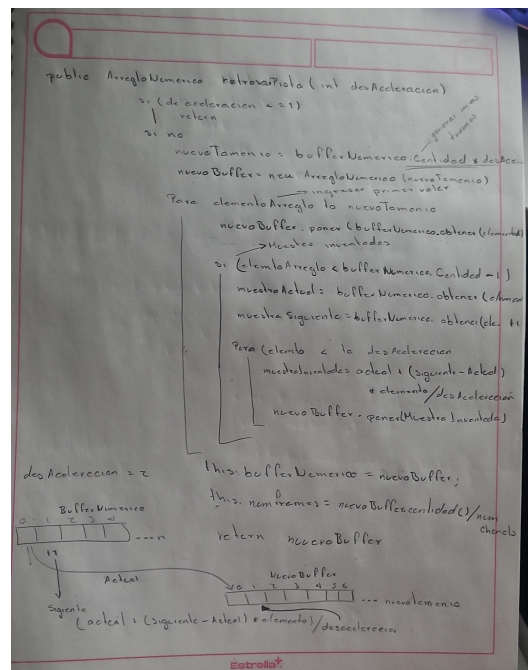 public ArregloNumerico retrasarPista (int desAceleracion)
si (desAceleracion <= 1)
return
si no
generar mas
frames
nuevoTamenio = bufferNumerico.Cantidad * desAce
nuevoBuffer = new ArregloNumerico (nuevoTamenio)
ingresar primer valor
Para elementoArreglo to nuevoTamenio
nuevoBuffer.poner (bufferNumerico.obtener (elemento)
Muestras inventadas
si (elemtoArreglo < bufferNumerico.Cantidad - 1)
muestraActual = bufferNumerico.obtener (elemen
muestraSiguiente = bufferNumerico.obtener(ele. +1
Para (elemto < to desAceleracion
muestraInventada = actual + (siguiente - Actual)
* elemento/desAceleracion
nuevoBuffer.poner(Muestra Inventada)
this.bufferNumerico = nuevoBuffer;
this.numframes = nuevoBuffer.cantidad()/num
chanels
return nuevoBuffer
desAceleracion = 2
BufferNumerico
0 1 2 3 4
.... n
Actual
Siguiente
NuevoBuffer
0 1 2 3 4 5 6
... nuevoTamenio
(actual + (siguiente - Actual) * elemento)/desaceleracion
Estrella